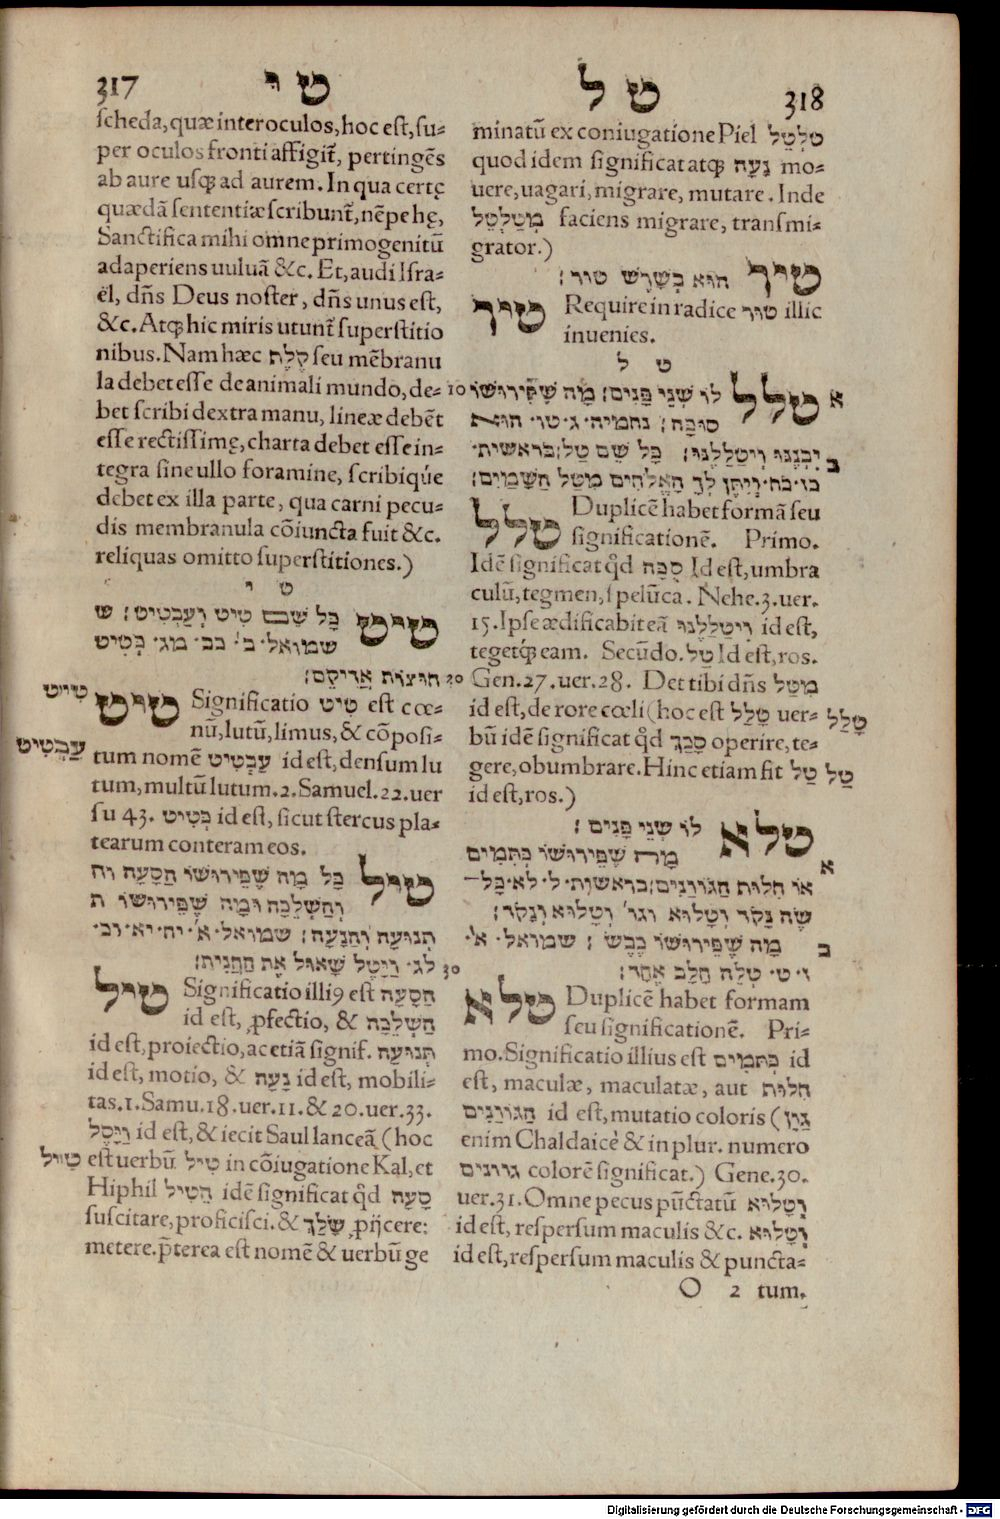 317
ט י
scheda, quæ inter oculos, hoc est, su=
per oculos fronti affigit᷑, pertingēs
ab aure usqꝫ ad aurem. In qua certę
quædā sententiæ scribunt᷑, nēpe hę,
Sanctifica mihi omne primogenitū
adaperiens uuluā &c. Et, audi Isra=
ël, dn̄s Deus noster, dn̄s unus est,
&c. Atqꝫ hic miris utunt᷑ superstitio
nibus. Nam hæc קלת seu mēbranu
la debet esse de animali mundo, de=
bet scribi dextra manu, lineæ debēt
esse rectissimę, charta debet esse in=
tegra sine ullo foramine, scribiqúe
debet ex illa parte, qua carni pecu=
dis membranula cōiuncta fuit &c.
reliquas omitto superstitiones.)
ט י
טיט כָּל שֵׁם טִיט וְעַבְטִיט׃ ש
שמואל· ב׳ כב· מג· כְּטִיט
חוּצוֹת אֲדִיקֵם׃
20
טִיט
טיט Significatio טִיט est cœ=
nū, lutū, limus, & cōposi=
עַבְטִיט
tum nomē עַבְטִיט id est, densum lu
tum, multū lutum. 2. Samuel. 22. uer
su 43. כְּטִיט id est, sicut stercus pla=
tearum conteram eos.
טיל כַּל מָה שֶׁפֵּירוּשׁוֹ הַסָּעָה וה
וְהַשְׁלָכָה וּמָה שֶׁפֵּירוּשׁוֹ ת
תְּנוּעָה וְהַנָעָה׃ שמואל· א׳ יח· יא· וב·
לג· וַיָּטֶל שָׁאוּל אֶת הַחֲנִית׃
30
טיל Significatio illiꝰ est הַסָּעָה
id est, ꝓfectio, & הַשְׁלָכָה
id est, proiectio, ac etiā signif. תְּנוּעָה
id est, motio, & נָעָה id est, mobili=
tas. 1. Samu. 18. uer. 11. & 20. uer. 33.
וַיָּטֶל id est, & iecit Saul lanceā (hoc
טִיל
est uerbū טִיל in cōiugatione Kal, et
Hiphil הֵטִיל idē significat qd̄ סָעָה
suscitare, proficisci. & שָׁלַךְ ꝓijcere:
metere. p̄terea est nomē & uerbū ge
ט ל
318
minatū ex coniugatione Piel טִלְטֵל
quod idem significat atqꝫ נָעָה mo=
uere, uagari, migrare, mutare. Inde
מְטַלְטֵל faciens migrare, transmi=
grator.)
טיך הוּא בְשָׁרֶשׁ טור׃
טיך Require in radice טור illic
inuenies.
ט ל
א
10
טלל לוֹ שְׁנֵי פָּנִים׃ מָה שֶׁפֵּירוּשׁוֹ
סוּכָּה׃ נחמיה· ג· טו· הוּא
ב
יִבְנֶנּוּ וִיטַלְלֶנּוּ׃ כָּל שֵׁם טַל׃ בראשית·
כז· כח· וְיִתֶּן לְךָ הָאֱלֹהִים מִטַּל הַשָּׁמַיִם׃
טלל Duplicē habet formā seu
significationē. Primo.
Idē significat qd̄ סֻכָּה Id est, umbra
culū, tegmen, speluca. Nehe. 3. uer.
15. Ipse ædificabit eā וִיטַלְלֶנּוּ id est,
tegetqꝫ eam. Secūdo. טַל Id est, ros.
Gen. 27. uer. 28. Det tibi dn̄s מִטַּל
id est, de rore cœli (hoc est טָלַל uer=
טָלַל
bū idē significat qd̄ סָכַךְ operire, te=
gere, obumbrare. Hinc etiam fit טַל
טַל
id est, ros.)
טלא לוֹ שְׁנֵי פָּנִים׃
מָה שֶׁפֵּירוּשׁוֹ כְּתָמִים
א
אוֹ חִלוּת הַגוֹוָנִים׃ בראשית· ל· לא· כָּל
שֶׂה נָקֹד וְטָלוּא וגו׳ וְטָלוּא וְנָקֹד׃
ב
מָה שֶׁפֵּירוּשׁוֹ כֶּבֶשׂ׃ שמואל· א׳·
ז· ט· טְלֵה חָלָב אֶחָד׃
טלא Duplicē habet formam
seu significationē. Pri=
mo. Significatio illius est כְּתָמִים id
est, maculæ, maculatæ, aut חִלוּת
הַגוֹוָנִים id est, mutatio coloris (גָוֶן
enim Chaldaicè & in plur. numero
גוונים colorē significat.) Gene. 30.
uer. 31. Omne pecus pūctatū וְטָלוּא
id est, respersum maculis &c. וְטָלוּא
id est, respersum maculis & puncta=
O 2 tum.
Digitalisierung gefördert durch die Deutsche Forschungsgemeinschaft - DFG